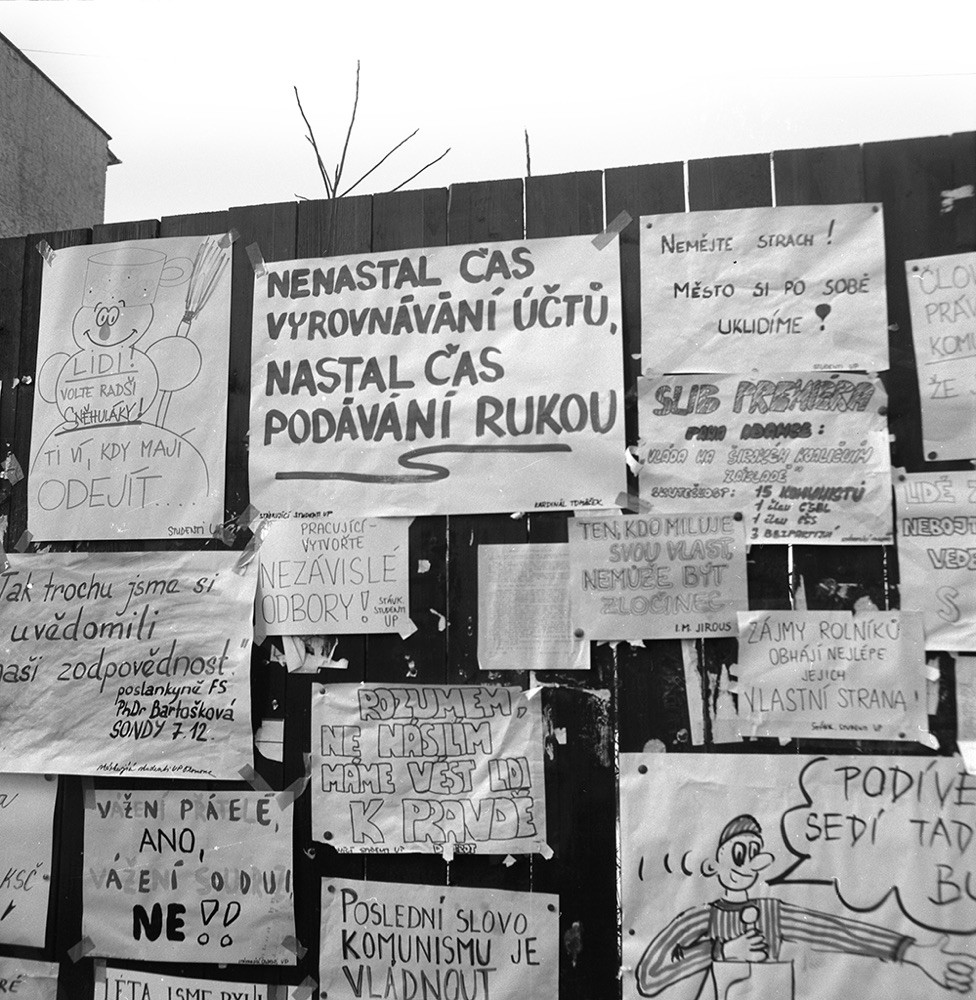 LIDI!
VOLTE RADŠI
SNĚHULÁKY!
TI VÍ, KDY MAJÍ
ODEJÍT....
STUDENTI UP
NENASTAL ČAS
VYROVNÁVÁNÍ ÚČTŮ,
NASTAL ČAS
PODÁVÁNÍ RUKOU
STÁVKUJÍCÍ STUDENTI UP
KARDINÁL TOMÁŠEK
NEMĚJTE STRACH!
MĚSTO SI PO SOBĚ
UKLIDÍME!
STUDENTI UP
SLIB PREMIÉRA
PANA ADAMCE:
"VLÁDA NA ŠIROKÉM KOALIČNÍM
ZÁKLADĚ"
SKUTEČNOST: 15 KOMUNISTŮ
1 člen ČSSL
1 člen ČSS
3 BEZPARTIJNÍ
ČLO
PRÁV
KOMU
ŽE
LIDÉ
NEBOJT
VEDE
S
PRACUJÍCÍ-
VYTVOŘTE
NEZÁVISLÉ
ODBORY!
STÁVK.
STUDENTI
UP
TEN, KDO MILUJE
SVOU VLAST,
NEMŮŽE BÝT
ZLOČINEC
I.M. JIROUS
ZÁJMY ROLNÍKŮ
OBHÁJÍ NEJLÉPE
JEJICH
VLASTNÍ STRANA!
STÁVK. STUDENTI UP
Tak trochu jsme si
uvědomili
naši zodpovědnost"
poslankyně FS
PhDr Bartošková
SONDY 7.12.
studenti UP Olomouc
ROZUMEM,
NE NÁSILÍM
MÁME VÉST LIDI
K PRAVDĚ
STUDENTI UP
DIDEROT
VÁŽENÍ PŘÁTELÉ,
ANO,
VÁŽENÍ SOUDRUZI
NE!!
KSČ
POSLEDNÍ SLOVO
KOMUNISMU JE
VLÁDNOUT
PODÍVE
SEDÍ TAD
BU
LÉTA JSME BYLI